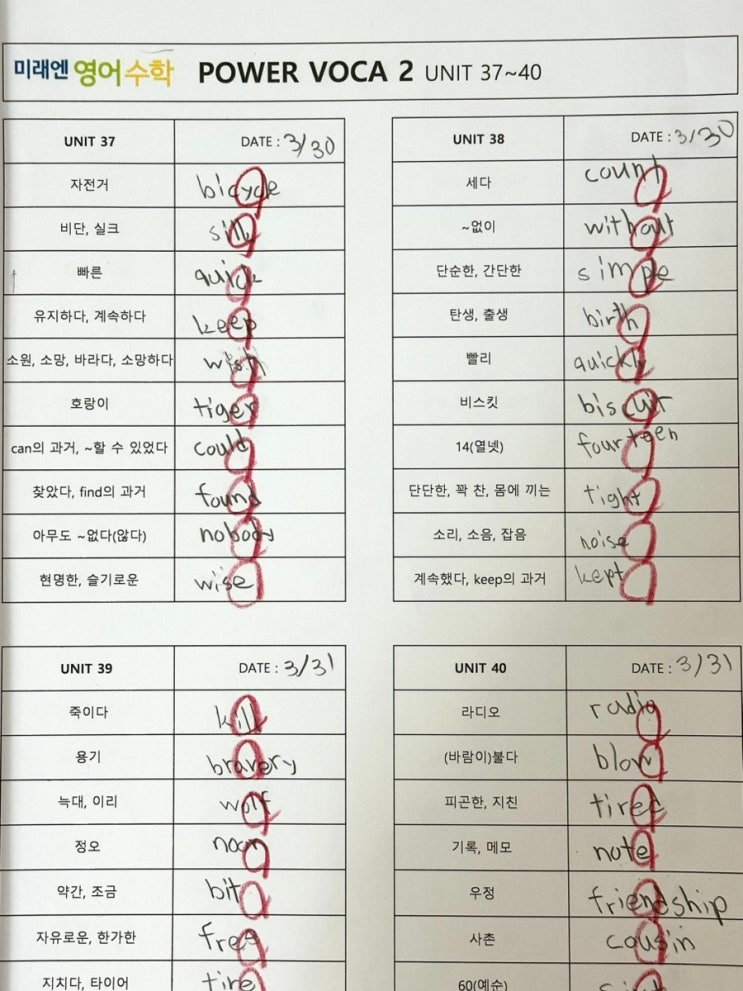 미래엔 영어수학 POWER VOCA 2 UNIT 37~40
UNIT 37 DATE : 3/30
자전거 bicycle
비단, 실크 silk
빠른 quick
유지하다, 계속하다 keep
소원, 소망, 바라다, 소망하다 wish
호랑이 tiger
can의 과거, ~할 수 있었다 could
찾았다, find의 과거 found
아무도 ~없다(않다) nobody
현명한, 슬기로운 wise
UNIT 38 DATE : 3/30
세다 count
~없이 without
단순한, 간단한 simple
탄생, 출생 birth
빨리 quickly
비스킷 biscuit
14(열넷) fourteen
단단한, 꽉 찬, 몸에 끼는 tight
소리, 소음, 잡음 noise
계속했다, keep의 과거 kept
UNIT 39 DATE : 3/31
죽이다 kill
용기 bravery
늑대, 이리 wolf
정오 noon
약간, 조금 bit
자유로운, 한가한 free
지치다, 타이어 tire
UNIT 40 DATE : 3/31
라디오 radio
(바람이)불다 blow
피곤한, 지친 tired
기록, 메모 note
우정 friendship
사촌 cousin
60(예순)